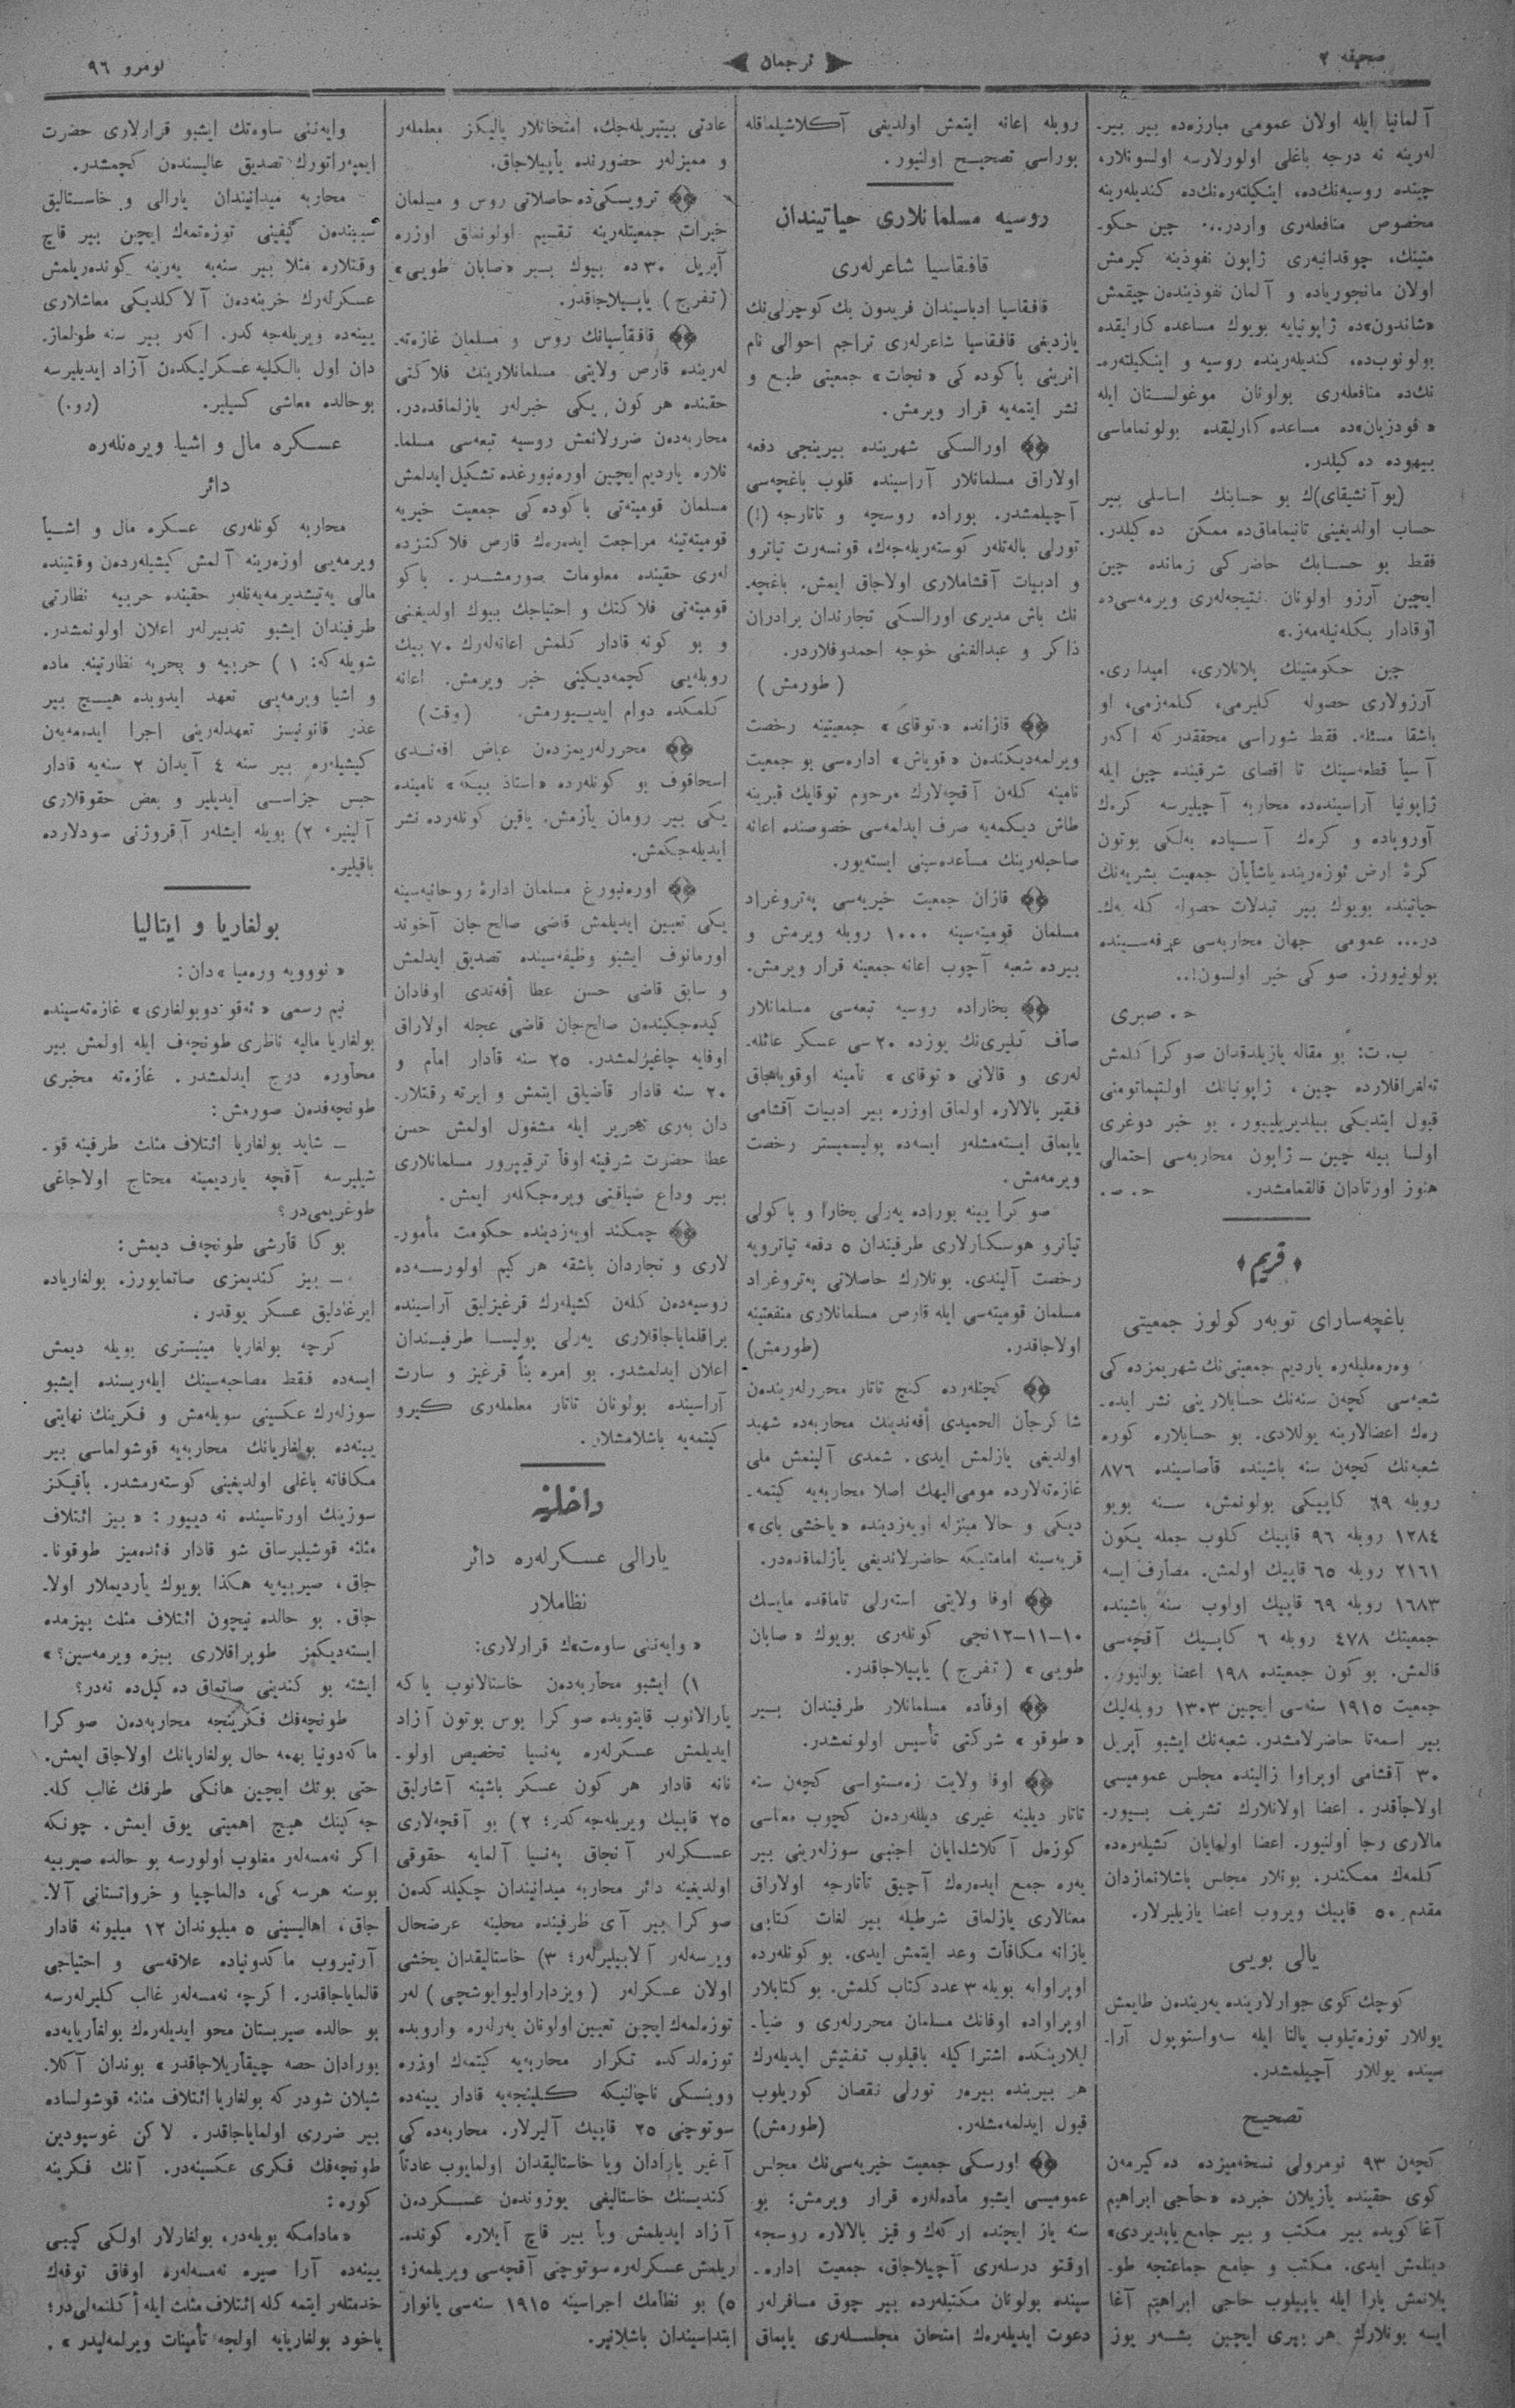 صحیفه ۲
ترجمان
نومرو ۹٦
آلمانیا ایله اولان عمومی مبارزه‌ده بیر بیر-
له‌رینه نه درجه باغلی اولورلارسه اولسونلار،
چینده روسیه‌نك‌ده، اینكیلتره‌نك‌ده كندیله‌رینه
مخصوص منافعله‌ری واردر... چین حكو-
متینك، چوقدانبه‌ری ژاپون نفوذینه كیرمش
اولان مانجوریاده و آلمان نفوذیندن چیقمش
«شاندون»ده ژاپونیایه بویوك مساعده كارلیقده
بولونوب‌ده، كندیله‌رینده روسیه و اینكیلته‌ره-
نك‌ده منافعله‌ری بولونان موغولستان ایله
بیهوده ده كیلدر.
(یو آنشیقای)ك بو حسابنك اساسلی بیر
حساب اولدیغینی تانیماماق‌ده ممكن ده كیلدر.
فقط بو حسابك حاضركی زمانده چین
ایچین آرزو اولونان نتیجه‌له‌ری ویرمه‌سی‌ده
اوقادار بكله‌نیله‌مه‌ز.»
چین حكومتینك پلانلاری، امیدلری.
آرزولاری حصوله كلیرمی، كلمه‌زمی، او
باشقا مسئله. فقط شوراسی محققدر كه اكه‌ر
آسیا قطعه‌سینك تا اقصای شرقینده چین ایله
ژاپونیا آراسینده‌ده محاربه آچیلیرسه كرەك
آوروپاده و كرەك آسیاده به‌لكی بوتون
كرۀ ارض ئوزه‌رینده یاشایان جمعیت بشریه‌نك
حیاتینده بویوك بیر تبدلات حصوله كله‌جه‌ك-
در... عمومی جهان محاربه‌سی عرفه‌سینده
بولونیورز. صوكی خیر اولسون!..
ح. صبری
ب. ت: بو مقاله یازیلدقدان صوكرا كلمش
ته‌لغرافلارده چین، ژاپونیانك اولتیماتومنی
قبول ایتدیكی بیلدیریلییور. بو خبر دوغری
اولسا بیله چین ــ ژاپون محاربه‌سی احتمالی
هنوز اورتادان قالقمامشدر. ح. ص.
﴿قریم﴾
باغچه‌سارای توبه‌ركولوز جمعیتی
وەرەملیله‌ره یاردیم جمعیتی‌نك شهریمزده‌كی
شعبه‌سی كچه‌ن سنه‌نك حسابلارینی نشر ایده-
رەك اعضالارینه یوللادی. بو حسابلاره كوره
شعبه‌نك كچه‌ن سنه باشینده قاصاسینده ۸۷٦
روبله ٦۹ كاپیكی بولونمش، سنه بویو
۱۲۸٤ روبله ۹٦ قاپیك كلوب جمله یكون
۲۱٦۱ روبله ٦٥ قاپیك اولمش. مصارف ایسه
۱٦۸۳ روبله ٦۹ قاپیك اولوب سنه باشینده
جمعیتك ٤۷۸ روبله ٦ كاپیك آقچه‌سی
قالمش. بو كون جمعیتده ۱۹۸ اعضا بولنیور.
جمعیت ۱۹۱٥ سنه‌سی ایچین ۱۳۰۳ روبله‌لیك
بیر اسمه‌تا حاضرلامشدر. شعبه‌نك ایشبو آپریل
۳۰ آقشامی اوپراوا زالینده مجلس عمومیسی
اولاجاقدر. اعضا اولانلارك تشریف بیور-
مالاری رجا اولنیور. اعضا اولمایان كشیله‌ره‌ده
كلمه‌ك ممكندر. بونلار مجلس باشلانمازدان
مقدم ٥۰ قاپیك ویروب اعضا یازیلیرلار.
یالی بویی
كوچك كوی جوارلارینده یه‌ریندەن طایمش
یوللار توزه‌تیلوب یالتا ایله سه‌واستوپول آرا-
سینده یوللار آچیلمشدر.
تصحیح
كچه‌ن ۹۳ نومرولی نسخه‌میزده ده كیرمه‌ن
كوی حقینده یازیلان خبرده «حاجی ابراهیم
آغا كویده بیر مكتب و بیر جامع یاپدیردی»
دینلمش ایدی. مكتب و جامع جماعتجه طو-
پلانمش پارا ایله یاپیلوب حاجی ابراهیم آغا
ایسه بونلارك هر بیری ایچین بشه‌ر یوز
روبله اعانه ایتمش اولدیغی آكلاشیلماقله
بوراسی تصحیح اولنیور.
روسیه مسلمانلاری حیاتیندان
قافقاسیا شاعرله‌ری
قافقاسیا ادباسیندان فریدون بك كوچرلی‌نك
یازدیغی قافقاسیا شاعرله‌ری تراجم احوالی نام
اثرینی باكوده‌كی «نجات» جمعیتی طبع و
نشر ایتمه‌یه قرار ویرمش.
اورالسكی شهرینده بیرینجی دفعه
اولاراق مسلمانلار آراسینده قلوب باغچه‌سی
آچیلمشدر. بوراده روسچه و تاتارجه (!)
تورلی باله‌تله‌ر كوسته‌ریله‌جه‌ك، قونسه‌رت تیاترو
و ادبیات آقشاملاری اولاجاق ایمش. باغچه-
نك باش مدیری اورالسكی تجارندان برادران
ذاكر و عبدالغنی خوجه احمدوفلاردر.
(طورمش)
قازانده «توقای» جمعیتینه رخصت
ویرلمه‌دیكندەن «قویاش» اداره‌سی بو جمعیت
نامینه كله‌ن آقچه‌لارك مرحوم توقایك قبرینه
طاش دیكمه‌یه صرف ایدلمه‌سی خصوصنده اعانه
صاحبله‌رینك مساعده‌سینی ایسته‌یور.
قازان جمعیت خیریه‌سی په‌تروغراد
مسلمان قومیته‌سینه ۱۰۰۰ روبله ویرمش و
بیرده شعبه آچوب اعانه جمعینه قرار ویرمش.
بخاراده روسیه تبعه‌سی مسلمانلار
صاف كلیری‌نك یوزده ۲۰ سی عسكر عائله-
له‌ری و قالانی «توقای» نامینه اوقویاجاق
فقیر بالالاره اولماق اوزره بیر ادبیات آقشامی
یاپماق ایسته‌مشله‌ر ایسه‌ده پولیسمیستر رخصت
ویرمه‌مش.
صوكرا یینه بوراده یه‌رلی بخارا و باكولی
تیاترو هوسكارلاری طرفیندان ٥ دفعه تیاترویه
رخصت آلیندی. بونلارك حاصلاتی په‌تروغراد
مسلمان قومیته‌سی ایله قارص مسلمانلاری منفعتینه
اولاجاقدر. (طورمش)
كچنله‌رده كنج تاتار محررله‌ریندەن
شاكرجان الحمیدی أفه‌ندینك محاربه‌ده شهید
اولدیغی یازلمش ایدی. شمدی آلینمش ملی
غازه‌ته‌لارده مومی‌الیهك اصلا محاربه‌یه كیتمه-
دیكی و حالا مینزله اویه‌زدینده «یاخشی بای»
قریه‌سینه امامتلیكه حاضرلاندیغی یازلماقده‌در.
اوفا ولایتی استه‌رلی تاماقده مایسك
۱۰–۱۱–۱۲نجی كونله‌ری بویوك «صابان
طویی» (تفرج) یاپیلاجاقدر.
اوفاده مسلمانلار طرفیندان بیر
«طوقو» شركتی تأسیس اولونمشدر.
اوفا ولایت زه‌مستواسی كچه‌ن سنه
تاتار دیلینه غیری دیلله‌ردەن كچوب معناسی
كوزەل آكلاشلمایان اجنبی سوزله‌رینی بیر
یه‌ره جمع ایدەرەك آچیق تاتارجه اولاراق
معنالاری یازلماق شرطیله بیر لغات كتابی
یازانه مكافات وعد ایتمش ایدی. بو كونله‌رده
اوپراوایه بویله ۳ عدد كتاب كلمش. بو كتابلار
اوپراواده اوفانك مسلمان محررله‌ری و ضیا-
لیلارینكده اشتراكیله باقیلوب تفتیش ایدیله‌رك
هر بیرینده بیرەر تورلی نقصان كوریلوب
قبول ایدلمه‌مشله‌ر. (طورمش)
اورسكی جمعیت خیریه‌سی‌نك مجلس
عمومیسی ایشبو ماده‌له‌ره قرار ویرمش: بو
سنه یاز ایچنده اركه‌ك و قیز بالالاره روسجه
اوقتو درسله‌ری آچیلاجاق، جمعیت اداره-
سینده بولونان مكتبله‌رده بیر چوق مسافرله‌ر
دعوت ایدیله‌رەك امتحان مجلسله‌ری یاپماق
عادتی بیتیریله‌جك، امتحانلار یالیكز معلمله‌ر
و ممیزله‌ر حضورنده یاپیلاجاق.
ترویسكی‌ده حاصلاتی روس و مسلمان
خیرات جمعیتله‌رینه تقسیم اولونماق اوزره
آپریل ۳۰ ده بیوك بیر «صابان طویی»
(تفرج) یاپیلاجاقدر.
قافقاسیانك روس و مسلمان غازه‌ته-
له‌رینده قارص ولایتی مسلمانلارینك فلاكتی
حقنده هر كون یكی خبرله‌ر یازلماقده‌در.
محاربه‌دەن ضررلانمش روسیه تبعه‌سی مسلما-
نلاره یاردیم ایچین اوره‌نبورغده تشكیل ایدلمش
مسلمان قومیته‌تی باكوده‌كی جمعیت خیریه
قومیته‌تینه مراجعت ایدەرەك قارص فلاكتزده
له‌ری حقینده معلومات صورمشدر. باكو
قومیته‌تی فلاكتك و احتیاجك بیوك اولدیغنی
و بو كونه قادار كلمش اعانه‌له‌رك ۷۰ بیك
روبله‌یی كچمه‌دیكینی خبر ویرمش. اعانه
كلمكده دوام ایدییورمش. (وقت)
محررله‌ریمزدەن عیاض افه‌ندی
اسحاقوف بو كونله‌رده «استاذ بیكه» نامینده
یكی بیر رومان یازمش. یاقین كونله‌رده نشر
ایدیله‌جكمش.
اوره‌نبورغ مسلمان ادارۀ روحانیه‌سینه
یكی تعیین ایدیلمش قاضی صالح جان آخوند
اورمانوف ایشبو وظیفه‌سینده تصدیق ایدلمش
و سابق قاضی حسن عطا أفه‌ندی اوفادان
كیده‌جكیندەن صالح‌جان قاضی عجله اولاراق
اوفایه چاغیرلمشدر. ۲٥ سنه قادار امام و
۲۰ سنه قادار قاضیلق ایتمش و ایرته وقتلار-
دان به‌ری تحریر ایله مشغول اولمش حسن
عطا حضرت شرفینه اوفا ترقیپرور مسلمانلاری
بیر وداع ضیافتی ویره‌جكله‌ر ایمش.
چمكند اویه‌زدینده حكومت مأمور-
لاری و تجاردان باشقه هر كیم اولورسه‌ده
روسیه‌دەن كله‌ن كشیله‌رك قرغیزلیق آراسینده
براقلمایاجاقلاری یه‌رلی پولیسا طرفیندان
اعلان ایدلمشدر. بو امره بناً قرغیز و سارت
آراسینده بولونان تاتار معلمله‌ری كیرو
كیتمه‌یه باشلامشلار.
داخلیه
یارالی عسكرله‌ره دائر
نظاملار
«وایه‌ننی ساوه‌ت»ك قرارلاری:
۱) ایشبو محاربه‌دەن خاستالانوب یاكه
یارالانوب قایتویده صوكرا بوس بوتون آزاد
ایدیلمش عسكرله‌ره په‌نسیا تخصیص اولو-
نانه قادار هر كون عسكر باشینه آشارلیق
۲٥ قاپیك ویریله‌جه‌كدر؛ ۲) بو آقچه‌لاری
عسكرله‌ر آنجاق په‌نسیا آلمایه حقوقی
اولدیغینه دائر محاربه میدانیندان چكیلدكدەن
صوكرا بیر آی ظرفینده محلینه عرضحال
ویرسه‌له‌ر آلابیلیرله‌ر؛ ۳) خاستالیقدان یخشی
اولان عسكرله‌ر (ویزداراولیوایوشچی) له‌ر
توزه‌لمه‌ك ایچین تعیین اولونان یه‌رله‌ره وارویده
توزه‌لدكده تكرار محاربه‌یه كیتمه‌ك اوزره
ووینسكی ناچالنیكه كلینجه‌یه قادار یینه‌ده
سوتوچنی ۲٥ قاپیك آلیرلار. محاربه‌ده‌كی
آغیر یارادان ویا خاستالیقدان اولمایوب عادتاً
كندیسنك خاستالیغی یوزوندەن عسكردەن
آزاد ایدیلمش ویا بیر قاچ آیلاره كونده-
ریلمش عسكرله‌ره سوتوچنی آقچه‌سی ویریلمه‌ز؛
٥) بو نظامك اجراسینه ۱۹۱٥ سنه‌سی یانوار
ابتداسیندان باشلانیر.
وایه‌ننی ساوه‌تك ایشبو قرارلاری حضرت
ایمپه‌راتورك تصدیق عالیسندەن كچمشدر.
محاربه میدانیندان یارالی و خاستالیق
سببیندەن كیفینی توزه‌تمه‌ك ایچین بیر قاچ
وقتلاره مثلا بیر سنه‌یه یه‌رینه كوندەریلمش
عسكرله‌رك خزینه‌دەن آلاكلدیكی معاشلاری
یینه‌ده ویریله‌جه‌كدر. اكه‌ر بیر سنه طولماز-
دان اول بالكلیه عسكرلیكدەن آزاد ایدیلیرسه
بوحالده معاشی كسیلیر. (رو.)
عسكره مال و اشیا ویره‌نله‌ره
دائر
محاربه كونله‌ری عسكره مال و اشیا
ویرمه‌یی اوزه‌رینه آلمش كیشیله‌ردەن وقتینده
مالی یه‌تیشدیرمه‌یه‌نله‌ر حقینده حربیه نظارتی
طرفیندان ایشبو تدبیرله‌ر اعلان اولونمشدر.
شویله‌كه: ۱) حربیه و بحریه نظارتینه ماده
و اشیا ویرمه‌یی تعهد ایدوبده هیچ بیر
عذر قانونیسز تعهدله‌رینی اجرا ایده‌مه‌یه‌ن
كیشیله‌ره بیر سنه ٤ آیدان ۲ سنه‌یه قادار
حبس جزاسی ایدیلیر و بعض حقوقلاری
آلینیر، ۲) بویله ایشله‌ر آقروژنی سودلارده
باقیلیر.
بولغاریا و ایتالیا
«نوویه وره‌میا»دان:
نیم رسمی «ئه‌قو دوبولغاری» غازه‌ته‌سینده
بولغاریا مالیه ناظری طونچه‌ف ایله اولمش بیر
محاوره درج ایدلمشدر. غازه‌ته مخبری
طونچه‌فدەن صورمش:
ــ شاید بولغاریا ائتلاف مثلث طرفینه قو-
شیلیرسه آقچه یاردیمینه محتاج اولاجاغی
طوغریمی‌در؟
بوكا قارشی طونچه‌ف دیمش:
ــ بیز كندیمزی صاتمایورز. بولغاریاده
ایرغادلیق عسكر یوقدر.
كرچه بولغاریا مینیستری بویله دیمش
ایسه‌ده فقط مصاحبه‌سینك ایله‌ریسنده ایشبو
سوزله‌رك عكسینی سویله‌مش و فكرینك نهایتی
یینه‌ده بولغاریانك محاربه‌یه قوشولماسی بیر
مكافاته باغلی اولدیغینی كوسته‌رمشدر. باقیكز
سوزینك اورتاسینده نه دییور: «بیز ائتلاف
مثلثه قوشیلیرساق شو قادار فائده‌میز طوقونا-
جاق، صیربیه‌یه هكذا بویوك یاردیملار اولا-
جاق. بو حالده نیچون ائتلاف مثلث بیزمده
ایسته‌دیكمز طوپراقلاری بیزه ویرمه‌سین؟»
ایشته بو كندینی صاتماق ده كیل‌ده نه‌در؟
طونچه‌فك فكرینجه محاربه‌دەن صوكرا
ماكه‌دونیا بهمه حال بولغاریانك اولاجاق ایمش.
حتی بونك ایچین هانكی طرفك غالب كله-
جه‌كینك هیچ اهمیتی یوق ایمش. چونكه
اكر نه‌مسه‌له‌ر مغلوب اولورسه بو حالده صیربیه
بوسنه هرسه‌كی، دالماچیا و خرواتستانی آلا-
جاق، اهالیسینی ٥ میلیوندان ۱۲ میلیونه قادار
آرتیروب ماكدونیاده علاقه‌سی و احتیاجی
قالمایاجاقدر. اكرچه نه‌مسه‌له‌ر غالب كلیرله‌رسه
بو حالده صیربستان محو ایدیله‌رەك بولغاریایه‌ده
بورادان حصه چیقاریلاجاقدر» بوندان آكلا-
شیلان شودر كه بولغاریا ائتلاف مثلثه قوشولساده
بیر ضرری اولمایاجاقدر. لاكن غوسپودین
طونچه‌فك فكری عكسینه‌در. آنك فكرینه
كوره:
«مادامكه بویله‌در، بولغارلار اولكی كیبی
یینه‌ده آرا صیره نه‌مسه‌له‌ره اوفاق توفه‌ك
خدمتله‌ر ایتمه‌كله ائتلاف مثلث ایله أكلنمه‌لی‌در؛
یاخود بولغاریایه اولجه تأمینات ویرلمه‌لیدر».